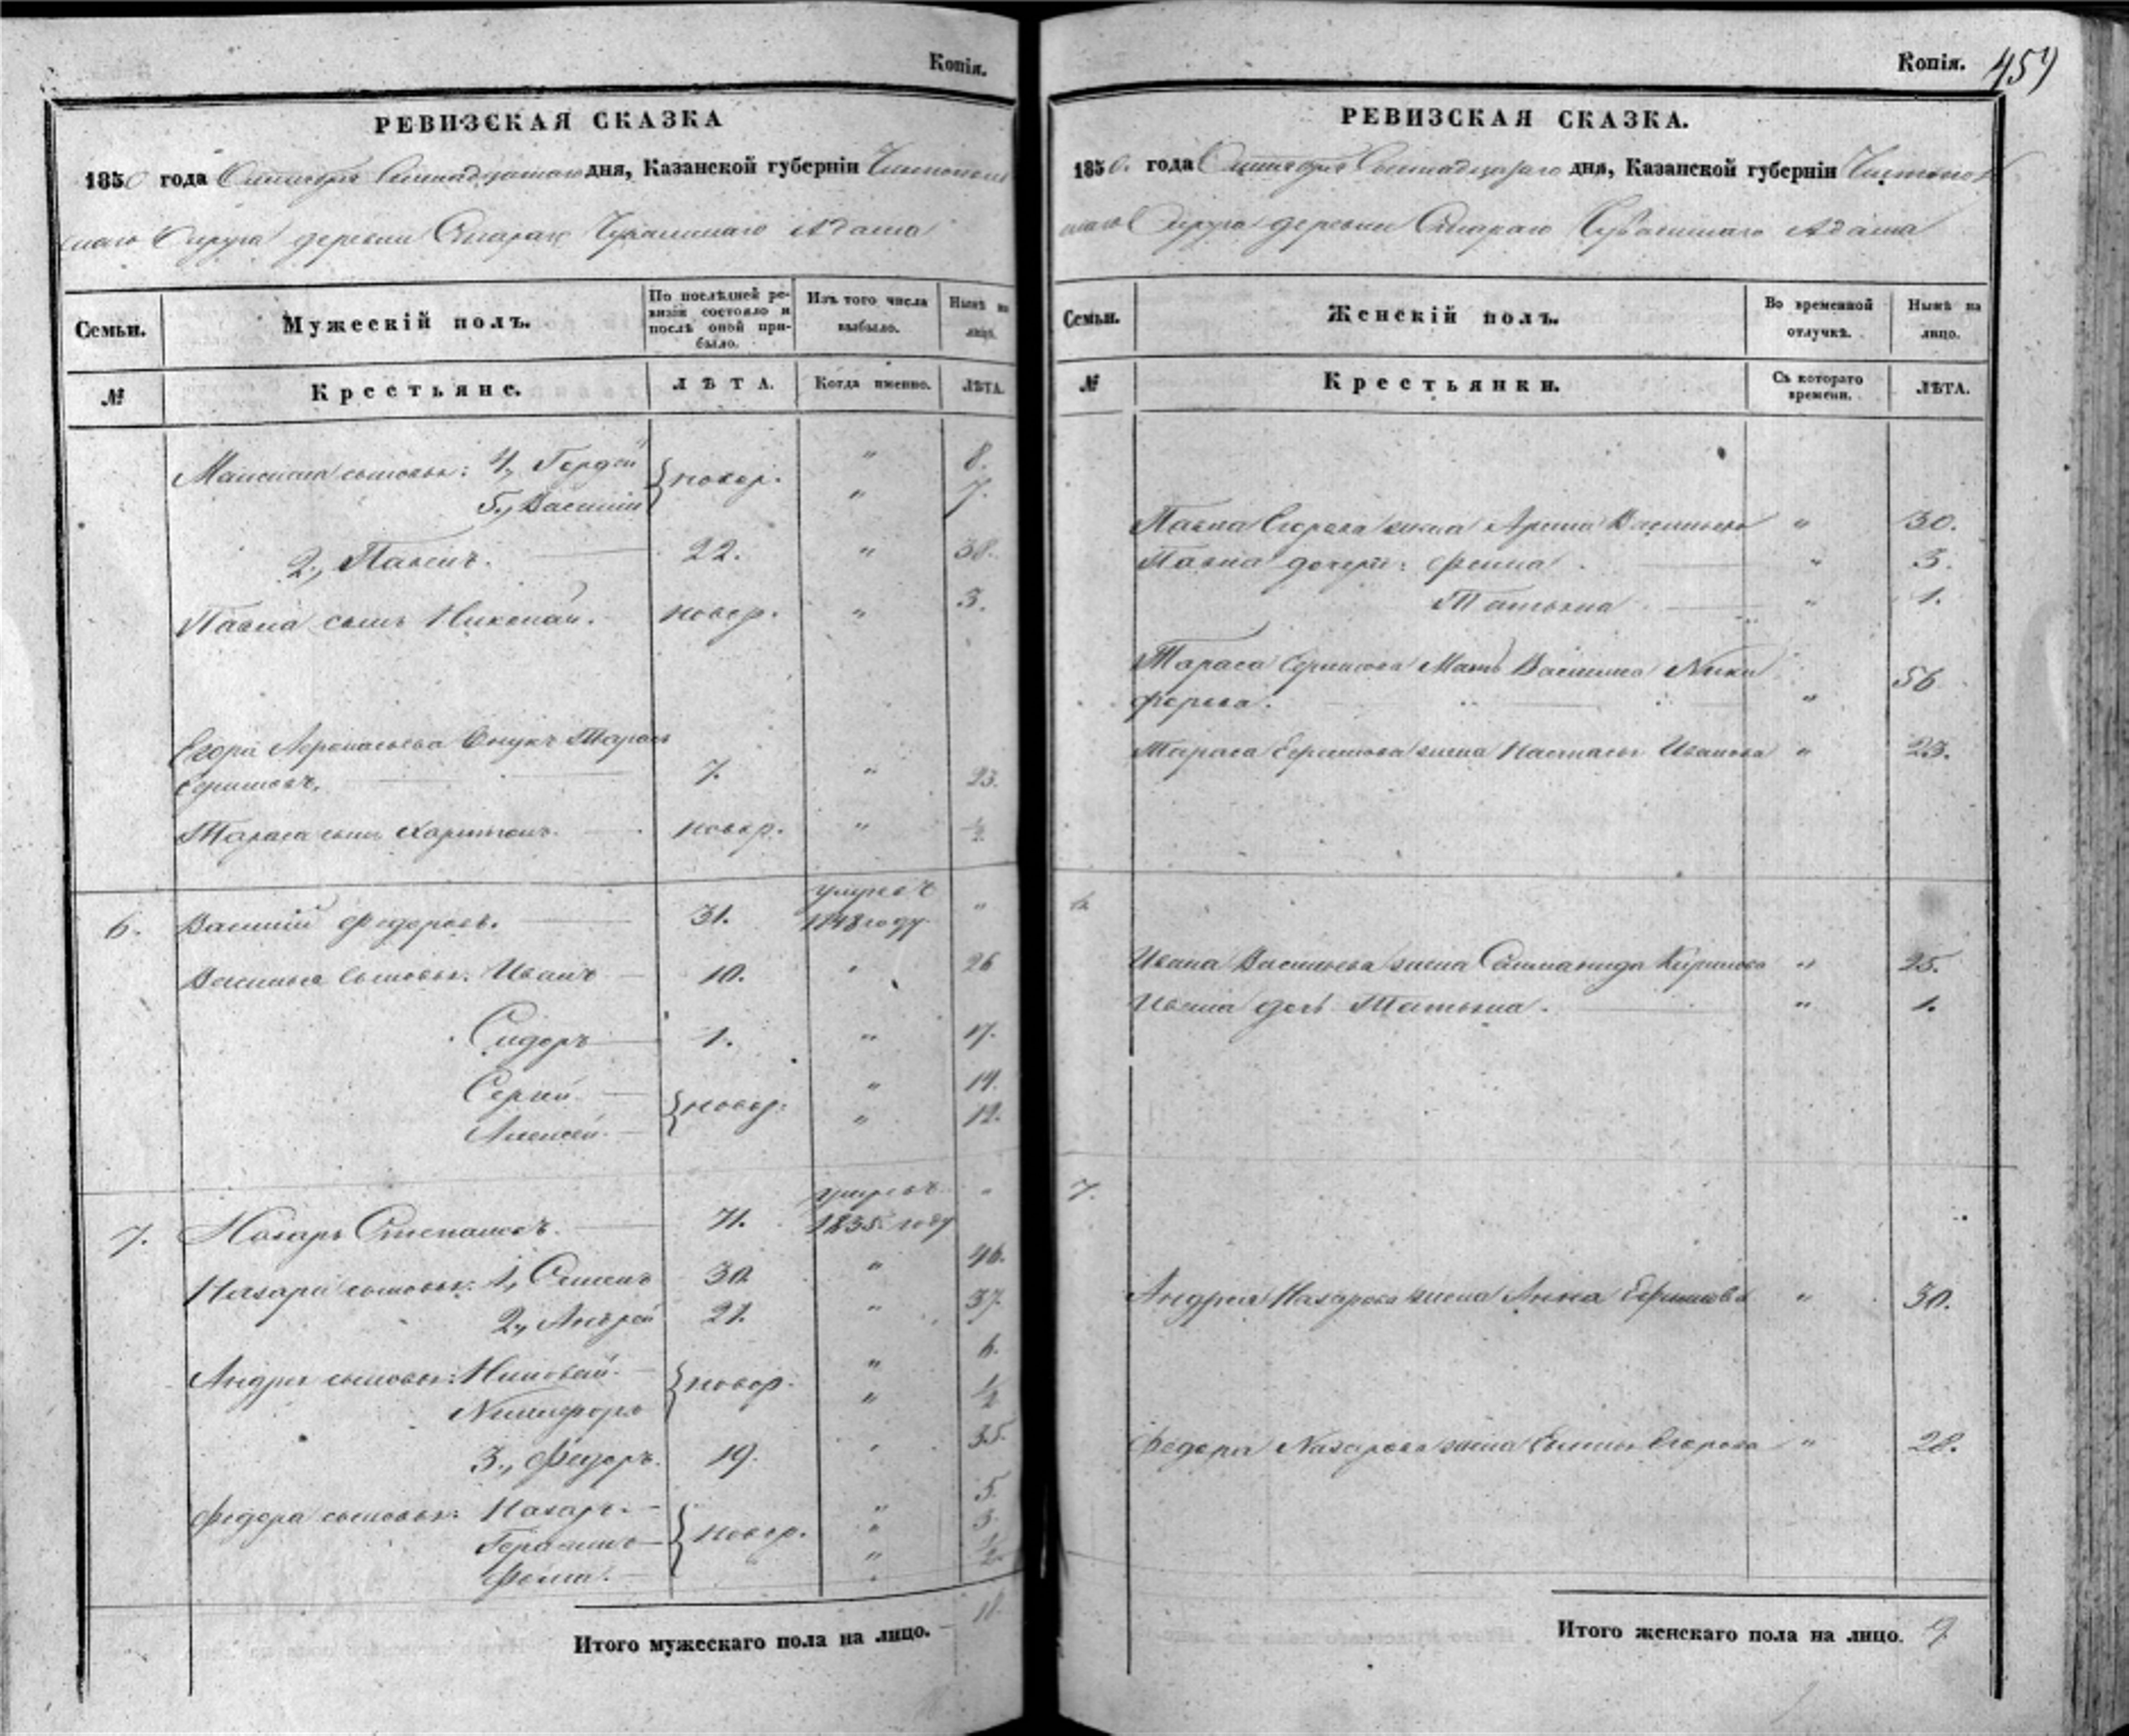 Копія.
РЕВИЗСКАЯ СКАЗКА
1850 года Октября дня, Казанской губерніи Чистополь
скаго Округа деревни Стараго Чувашскаго Адама
Семьи.
Мужескій полъ.
По послѣдней ре-
визіи состояло и
послѣ оной при-
было.
Изъ того числа
выбыло.
Нынѣ на
лицо.
№
Крестьяне.
ЛѢТА.
Когда именно.
ЛѢТА.
сыновья: 4, Гордѣй новор. " 8.
5., Василій " 7.
2., Павелъ. 22. " 38.
Павла сынъ Николай. новор. " 3.
Егора Афонасьева внукъ Тарасъ
Ефимовъ. 7. " 23.
Тараса сынъ Харитонъ. новор. " ½
умеръ въ
6. Василій Федоровъ. 31. 1848 году "
Василья сыновья: Иванъ 10. " 26
Сидоръ 1. " 17.
Сергѣй новор: " 14.
Алексѣй " 12.
умеръ въ "
7. Назаръ Степановъ. 71. 1835 году
Назара сыновья: 1, Семенъ 30. " 46.
2., Андрей 21. " 37.
Андрея сыновья: Николай новор. " 6.
Никифоръ " ½
3., Федоръ. 19. " 35.
Федора сыновья: Назаръ новор. " 5.
Герасимъ " 3.
Фома. " ½
Итого мужескаго пола на лицо. 18.
Копія. 457
РЕВИЗСКАЯ СКАЗКА.
1850. года Октября дня, Казанской губерніи Чистополь
скаго Округа деревни Стараго Чувашскаго Адама
Семьи.
Женскій полъ.
Во временной
отлучкѣ.
Нынѣ на
лицо.
№
Крестьянки.
Съ котораго
времени.
ЛѢТА.
Павла Егорова жена Арина Васильева " 30.
Павла дочери: Фекла " 3.
Татьяна " 1.
Тараса Ефимова Мать Василиса Ники
форова. " 56
Тараса Ефимова жена Настасья Иванова " 23.
6.
Ивана Васильева жена Соломанида Кирилова " 25.
Ивана дочь Татьяна. " 1.
7.
Андрея Назарова жена Анна Ефимова " 30.
Федора Назарова жена Егорова " 28.
Итого женскаго пола на лицо. 9